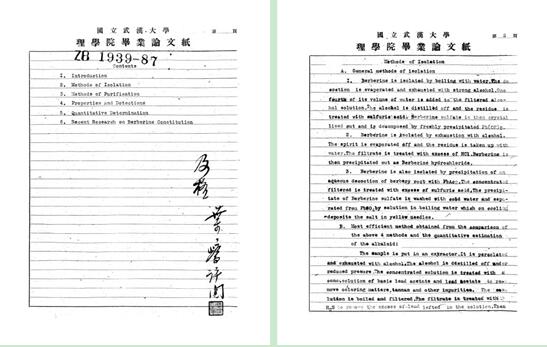 國立武漢大學 第 頁
理學院畢業論文紙
ZB 1939-87
Contents
1. Introduction
2. Methods of Isolation
3. Methods of Purification
4. Properties and Detections
5. Quantitative Determination
6. Recent Research on Berberine Constitution
國立武漢大學 第 頁
理學院畢業論文紙
Methods of Isolation
A. General methods of isolation
1. Berberine is isolated by boiling with water. The de
coction is evaporated and exhausted with strong alcohol. One
fourth of its volume of water is added to the filtered alco-
hol solution. The alcohol is distilled off and the residue is
treated with sulfuric acid. Berberine sulfate is then crystal
lized out and is decomposed by freshly precipitated
2. Berberine is isolated by exhaustion with alcohol.
The spirit is evaporated off and the residue is taken up with
water. The filtrate is treated with excess of HCl. Berberine is
then precipitated out as Berberine hydrochloride.
3. Berberine is also isolated by precipitation of an
aqueous decoction of berbery root with The concentrated
filtered is treated with excess of sulfuric acid. The precipi-
tate of Berberine sulfate is washed with cold water and sepa-
rated from by solution in boiling water which on cooling
deposits the salt in yellow needles.
B. Most efficient method obtained from the comparison of
the above 4 methods and the quantitative estimation
of the alkaloid:
The sample is put in an extractor. It is percolated
and exhausted with alcohol. The alcohol is distilled off under
reduced pressure. The concentrated solution is treated with a
solution of basic lead acetate and lead acetate to re-
move coloring matters, tannan and other impurities. The
lution is boiled and filtered. The filtrate is treated with
H2S to remove the excess of lead lefted in the solution. Then